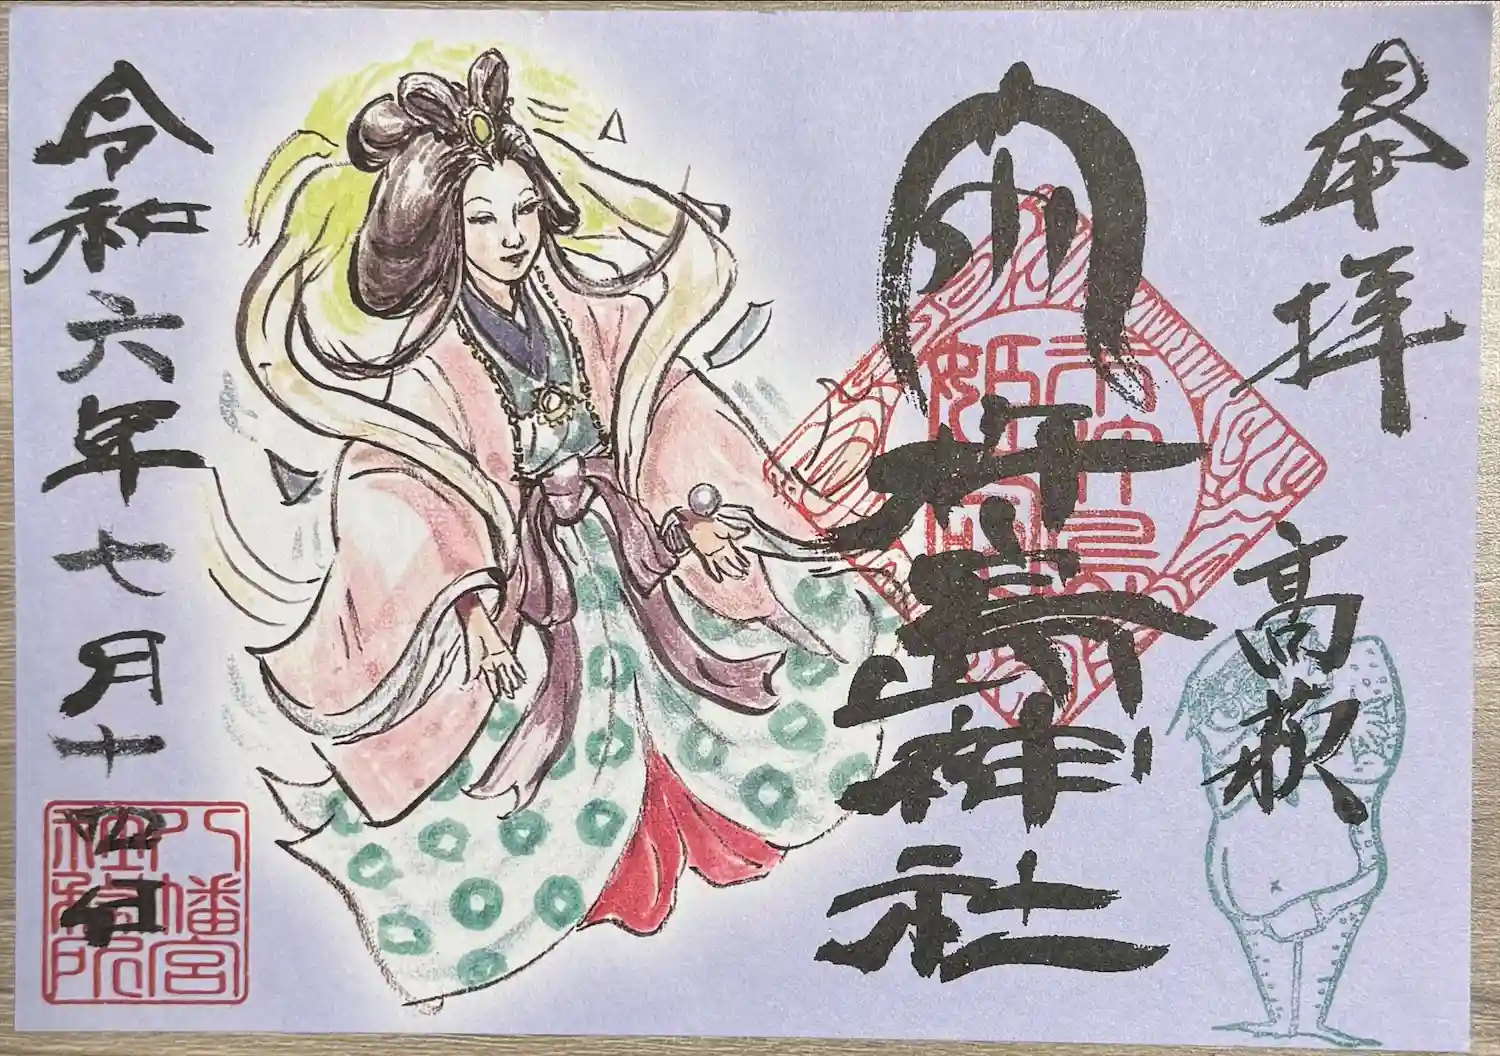 奉拝
高萩
市杵島神社
令和六年七月十四日
八幡宮
社務所